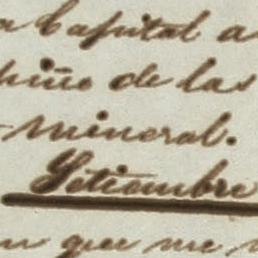 a Capital a
de las
mineral.
Setiembre
que me